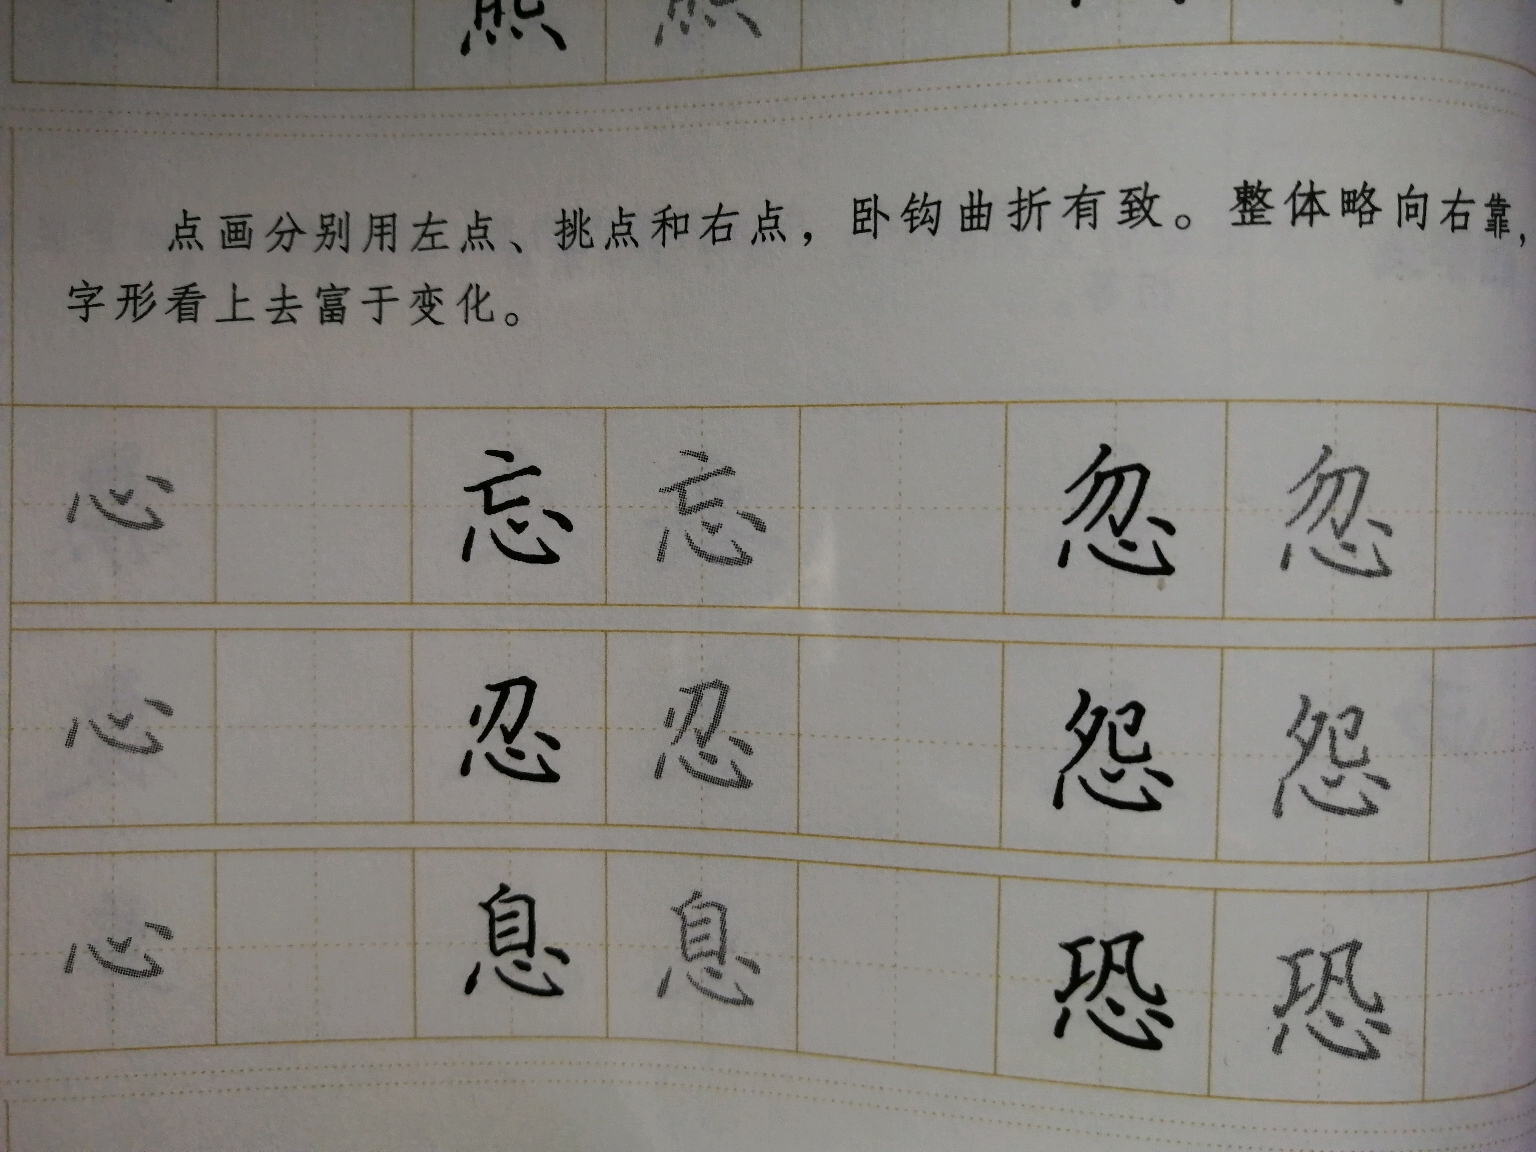 点画分别用左点、挑点和右点，卧钩曲折有致。整体略向右靠，
字形看上去富于变化。
心 忘 忘 忽 忽
心 忍 忍 怨 怨
心 息 息 恐 恐